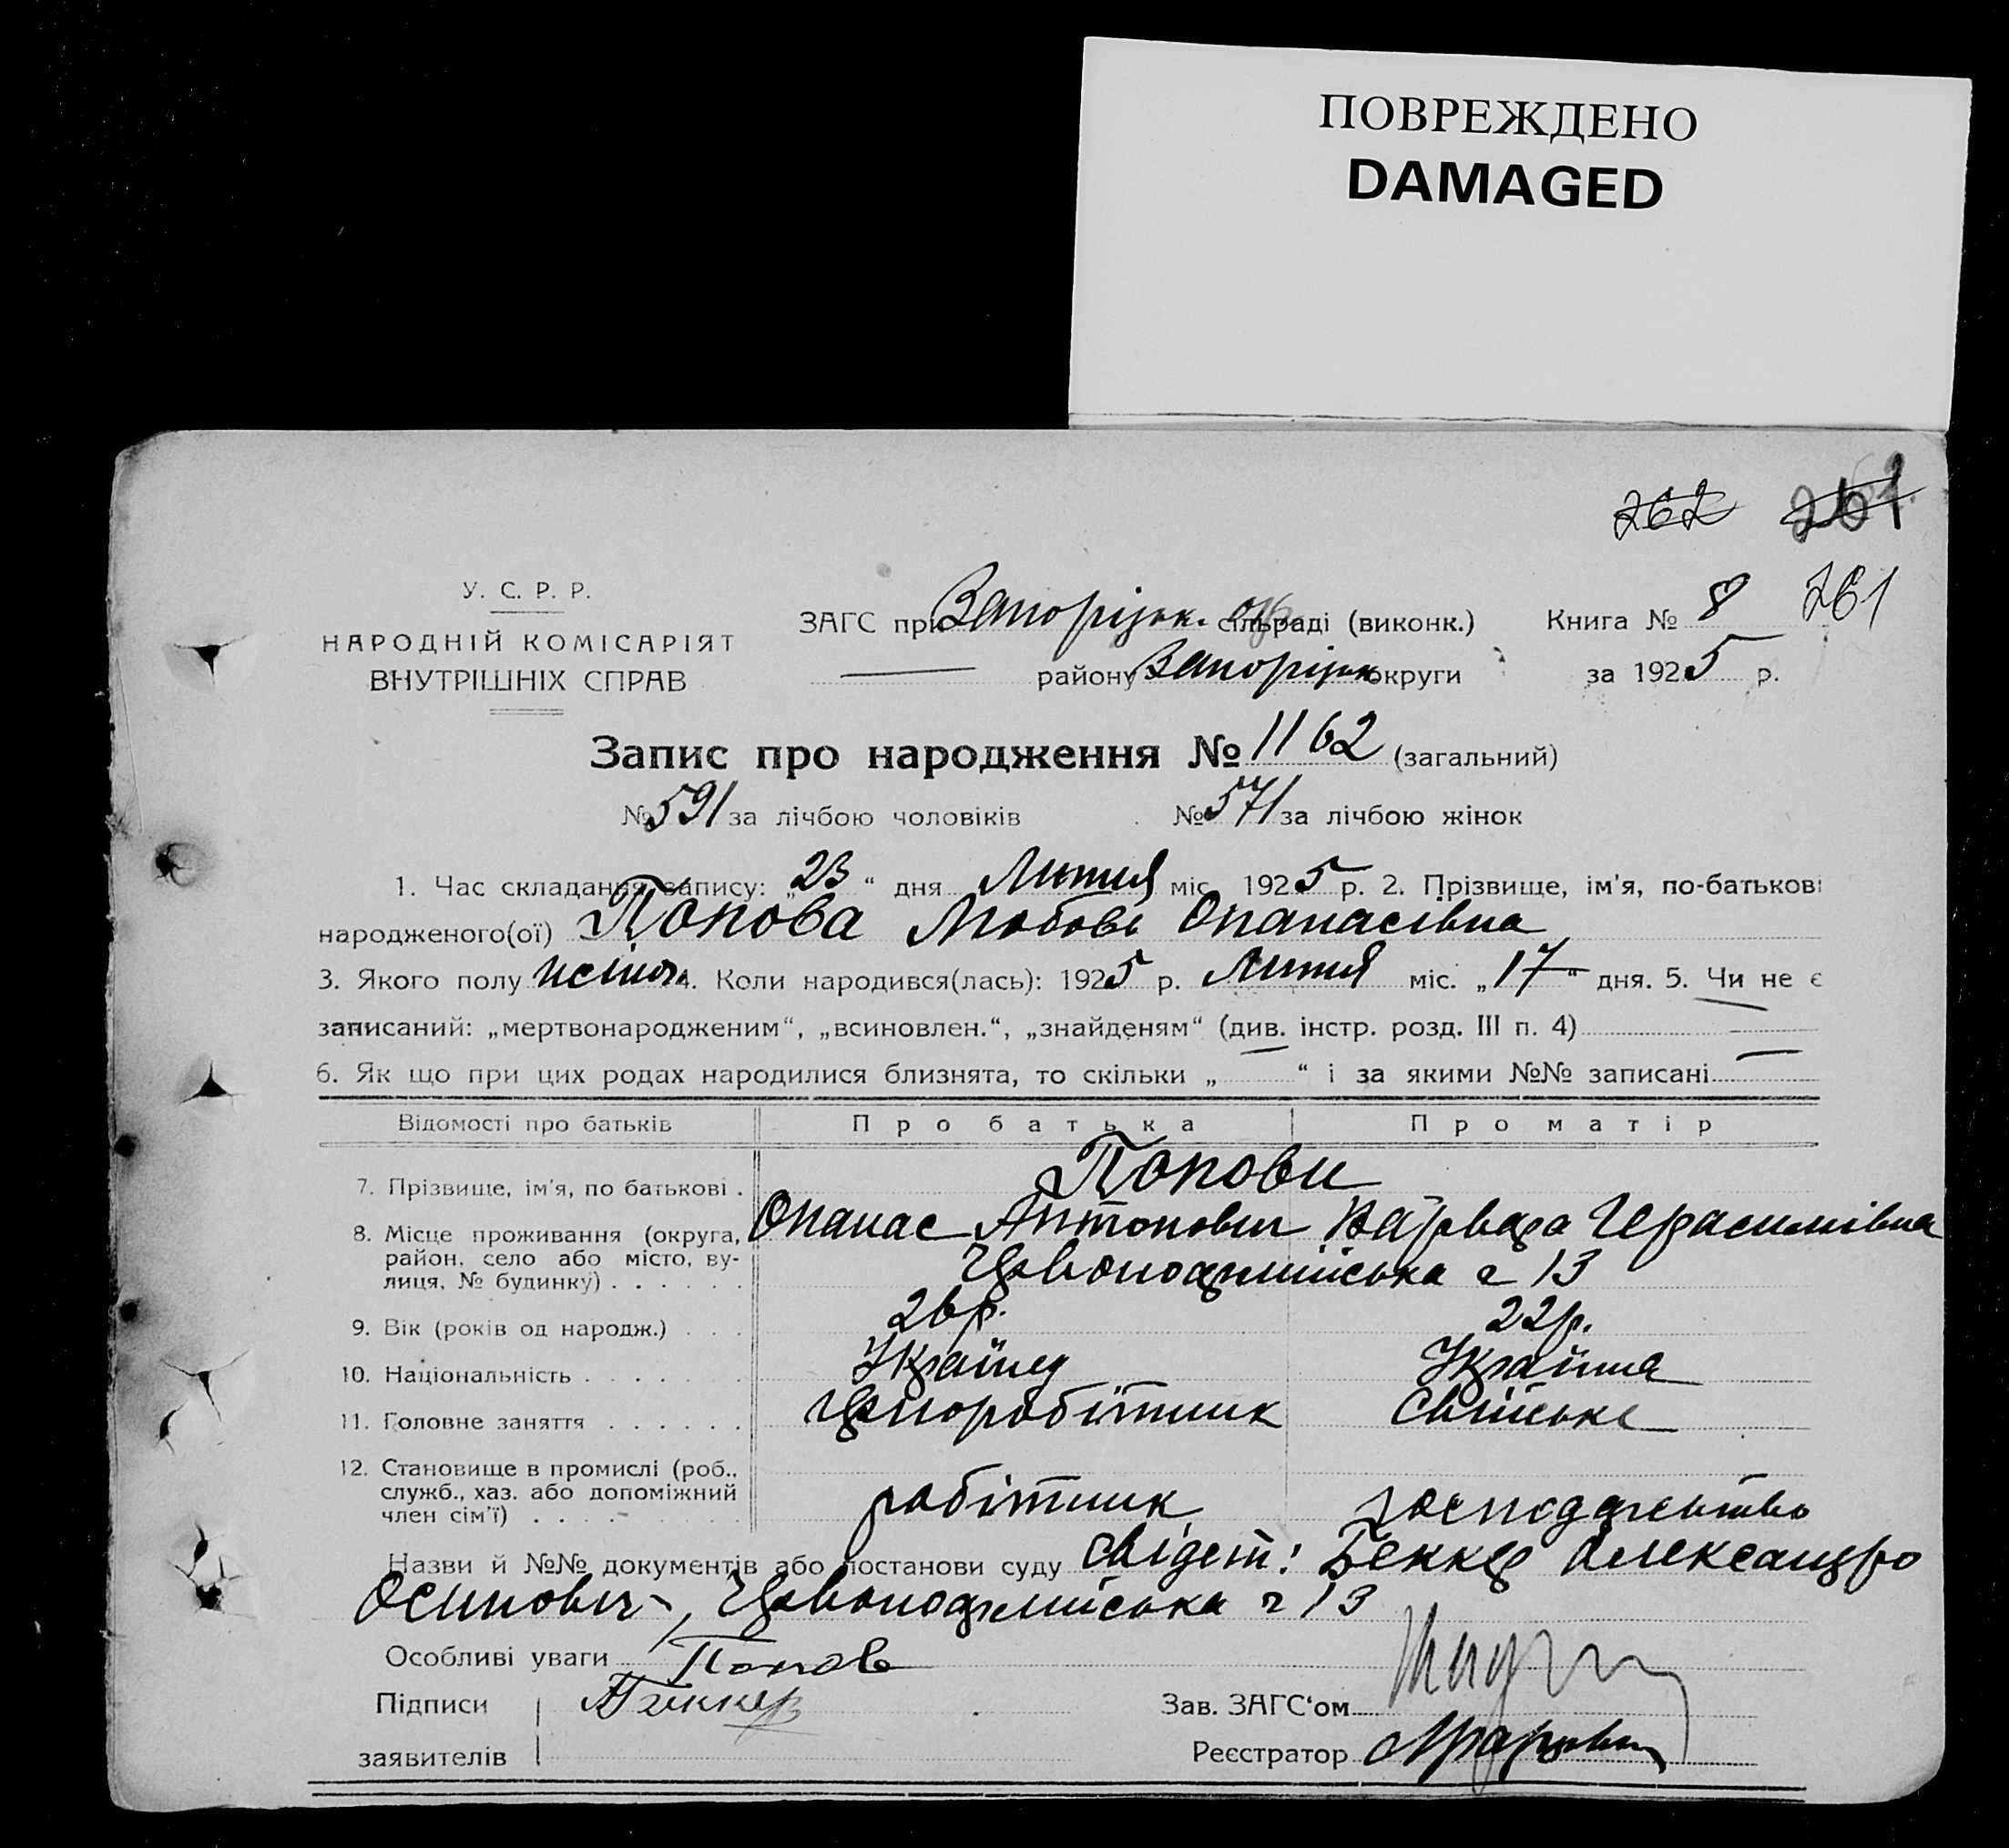 ПОВРЕЖДЕНО
DAMAGED
262 261
У. С. Р. Р.
НАРОДНІЙ КОМІСАРІЯТ
ВНУТРІШНІХ СПРАВ
ЗАГС при Запоріжк. сільраді (виконк.) Книга № 8 261
району Запоріжк округи за 1925 р.
Запис про народження № 1162 (загальний)
№ 591 за лічбою чоловіків № 571 за лічбою жінок
1. Час складання запису: „23“ дня Лютня міс. 1925 р. 2. Прізвище, ім'я, по-батькові
народженого(ої) Попова Любовь Опанасівна
3. Якого полу жіноч. 4. Коли народився(лась): 1925 р. Лютня міс. „17“ дня. 5. Чи не є
записаний: „мертвонародженим“, „всиновлен.“, „знайденям“ (див. інстр. розд. III п. 4)
6. Як що при цих родах народилися близнята, то скільки „ “ і за якими №№ записані
Відомості про батьків Про батька Про матір
7. Прізвище, ім'я, по батькові . Попови
Опанас Антонович Варвара Герасимівна
8. Місце проживання (округа, район, село або місто, ву-
лиця, № будинку) . . . . . . Червоноармійська ч 13
9. Вік (років од народж.) . . . 26р. 22р.
10. Національність . . . . . . Українец Українка
11. Головне заняття . . . . . . Чорноробітник Свійське
12. Становище в промислі (роб.,
служб., хаз. або допоміжний
член сім'ї) . . . . . . . . . робітник господарство
Назви й №№ документів або постанови суду Свідет: Беккер Александро
Осипович, Червоноармійська ч 13
Особливі уваги Попов
Підписи Беккер Зав. ЗАГС'ом
заявителів Реєстратор